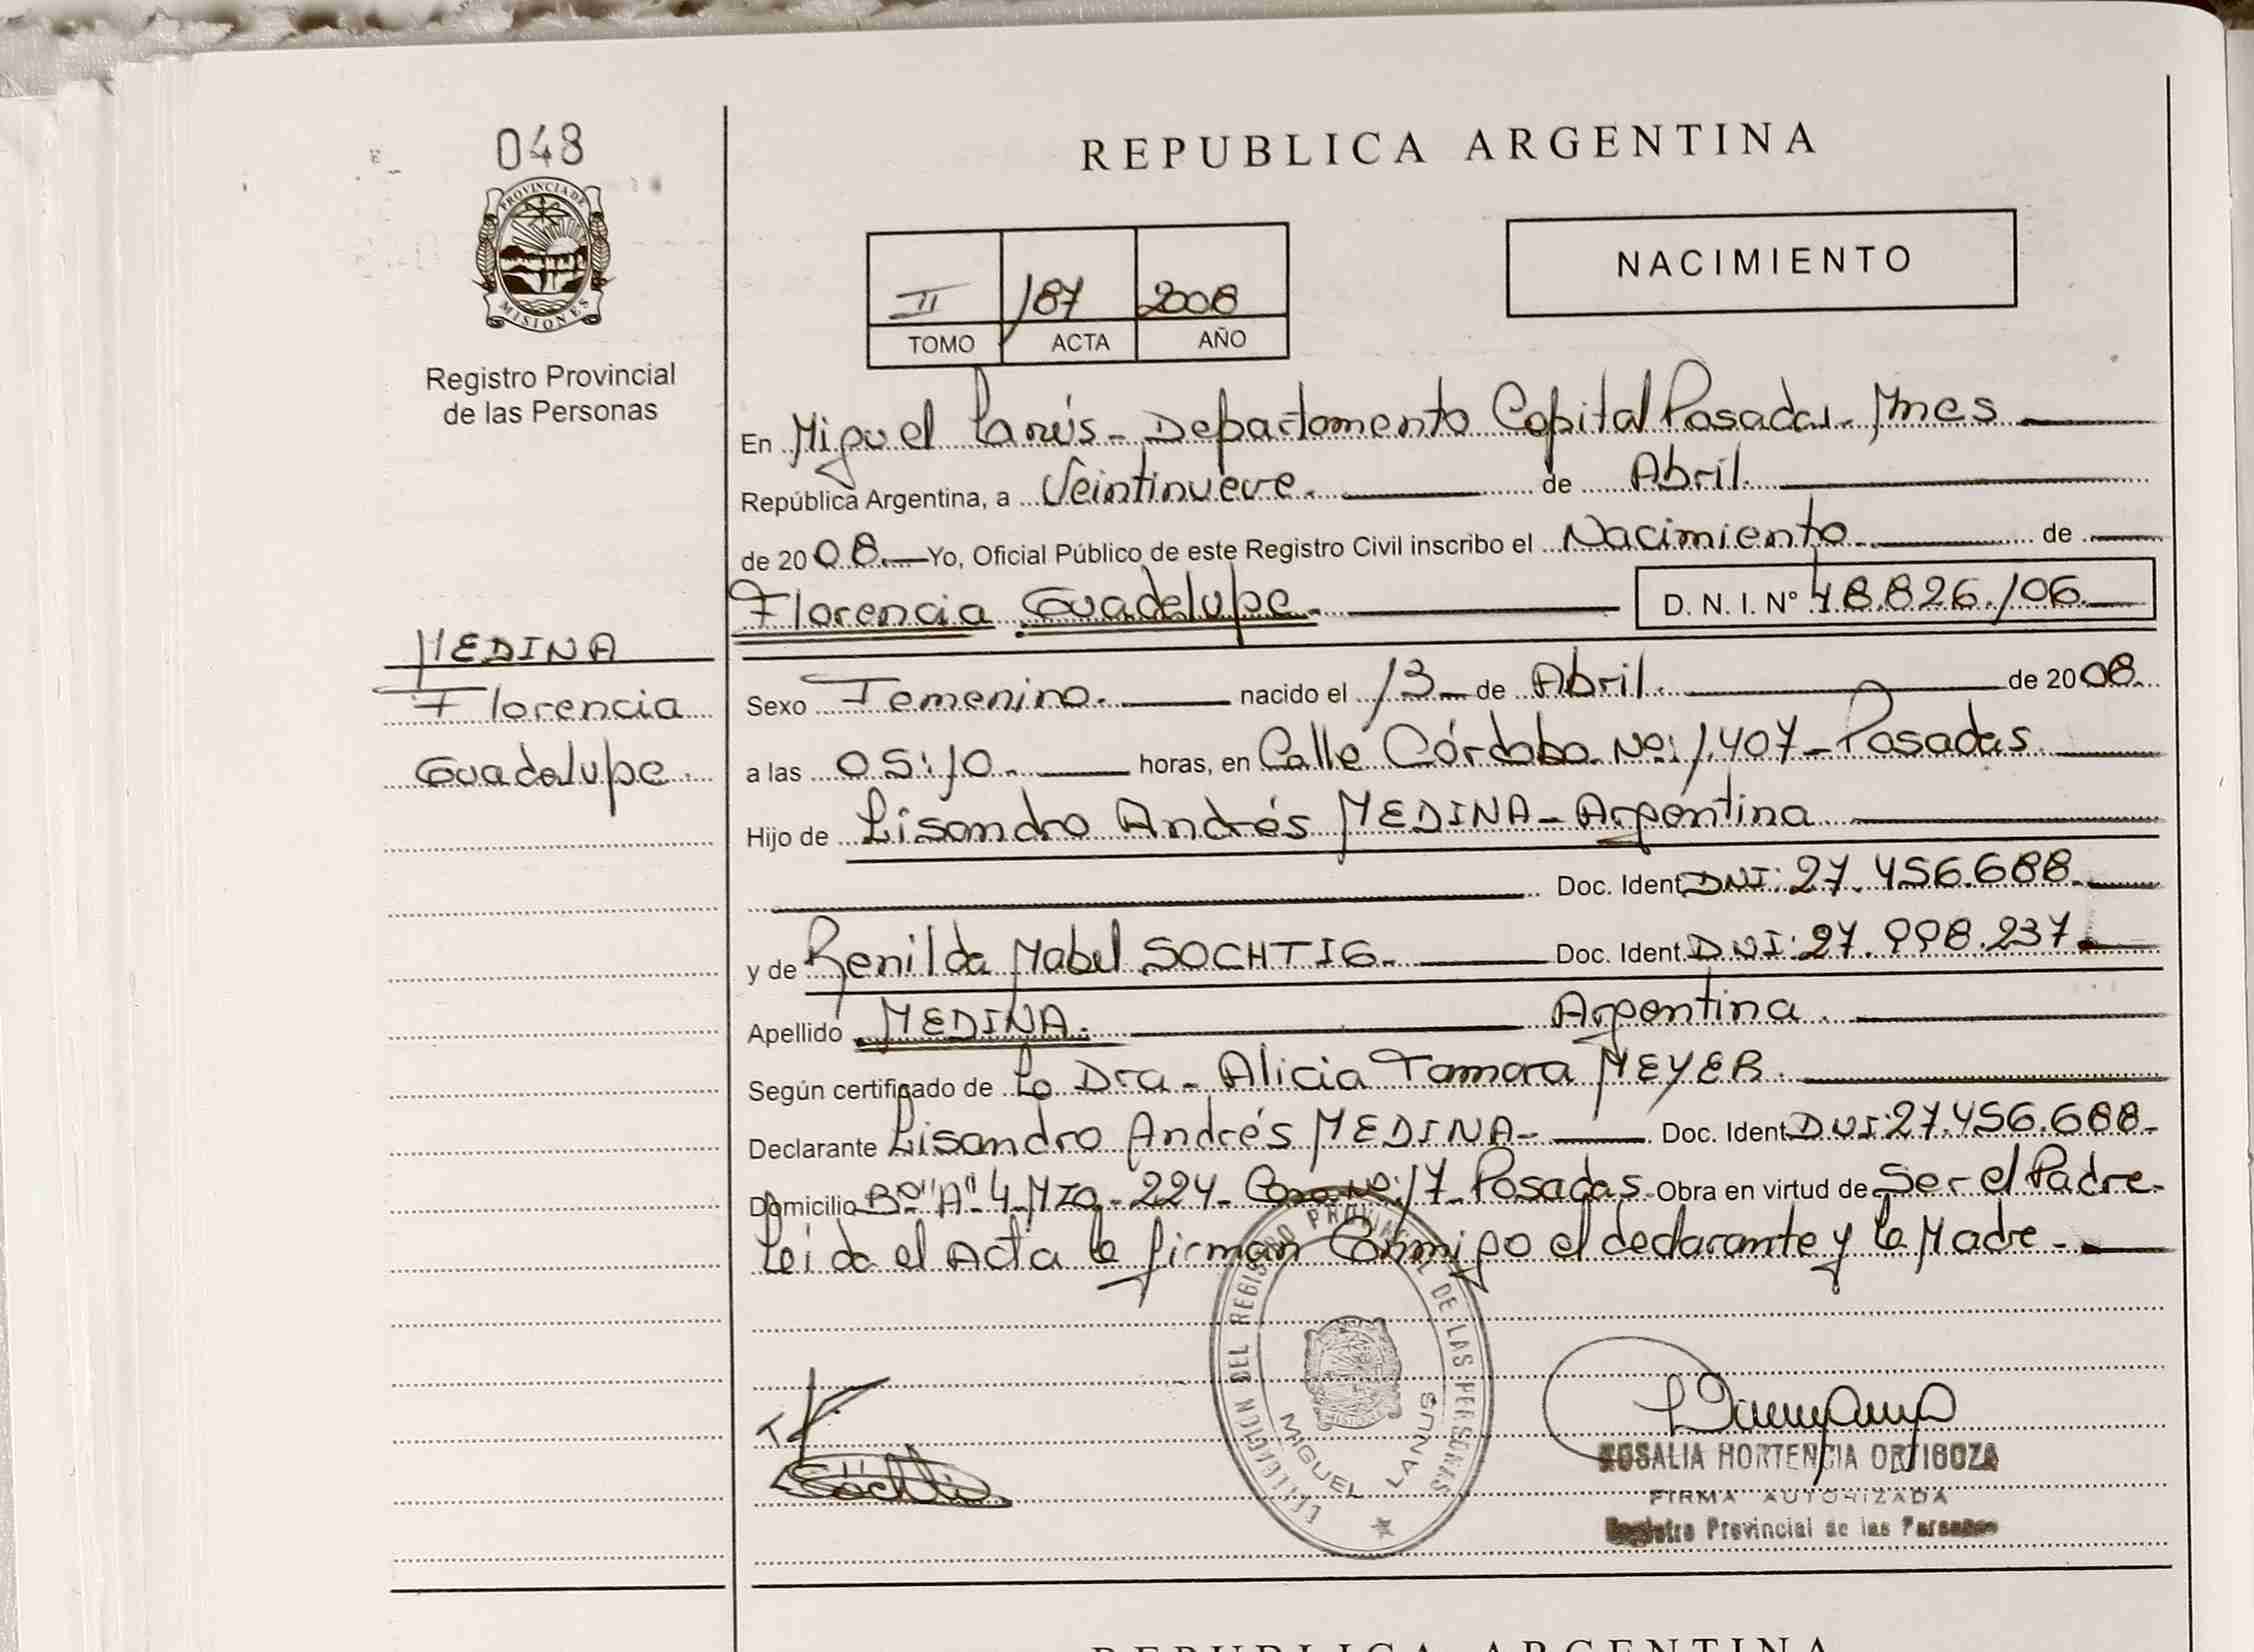 048
PROVINCIA DE
MISIONES
Registro Provincial
de las Personas
MEDINA
Florencia
Guadalupe.
REPUBLICA ARGENTINA
II 187 2008
TOMO ACTA AÑO
NACIMIENTO
En Miguel Lanús - Departamento Capital Posadas - Mnes
República Argentina, a Veintinueve. de Abril.
de 2008. Yo, Oficial Público de este Registro Civil inscribo el Nacimiento de
Florencia Guadalupe. D. N. I. Nº 48.826.106.
Sexo Femenino. nacido el 13 de Abril. de 2008.
a las 05:10. horas, en Calle Córdoba Nº: 1.407 - Posadas.
Hijo de Lisandro Andrés MEDINA - Argentina
Doc. Ident. DNI: 27.456.688.
y de Renilda Mabel SOCHTIG. Doc. Ident. DNI: 27.998.237.
Apellido MEDINA. Argentina.
Según certificado de La Dra - Alicia Tamara MEYER.
Declarante Lisandro Andrés MEDINA - Doc. Ident. DNI: 27.456.688.
Domicilio Bº "A" 4 Mza - 224 - Casa Nº: 17 - Posadas. Obra en virtud de Ser el Padre.
Leida el Acta la firman Conmigo el declarante y la Madre.
DELEGACION DEL REGISTRO PROVINCIAL DE LAS PERSONAS
MIGUEL LANUS
Söchtig
ROSALIA HORTENCIA ORTIGOZA
FIRMA AUTORIZADA
Registro Provincial de las Personas
REPUBLICA ARGENTINA